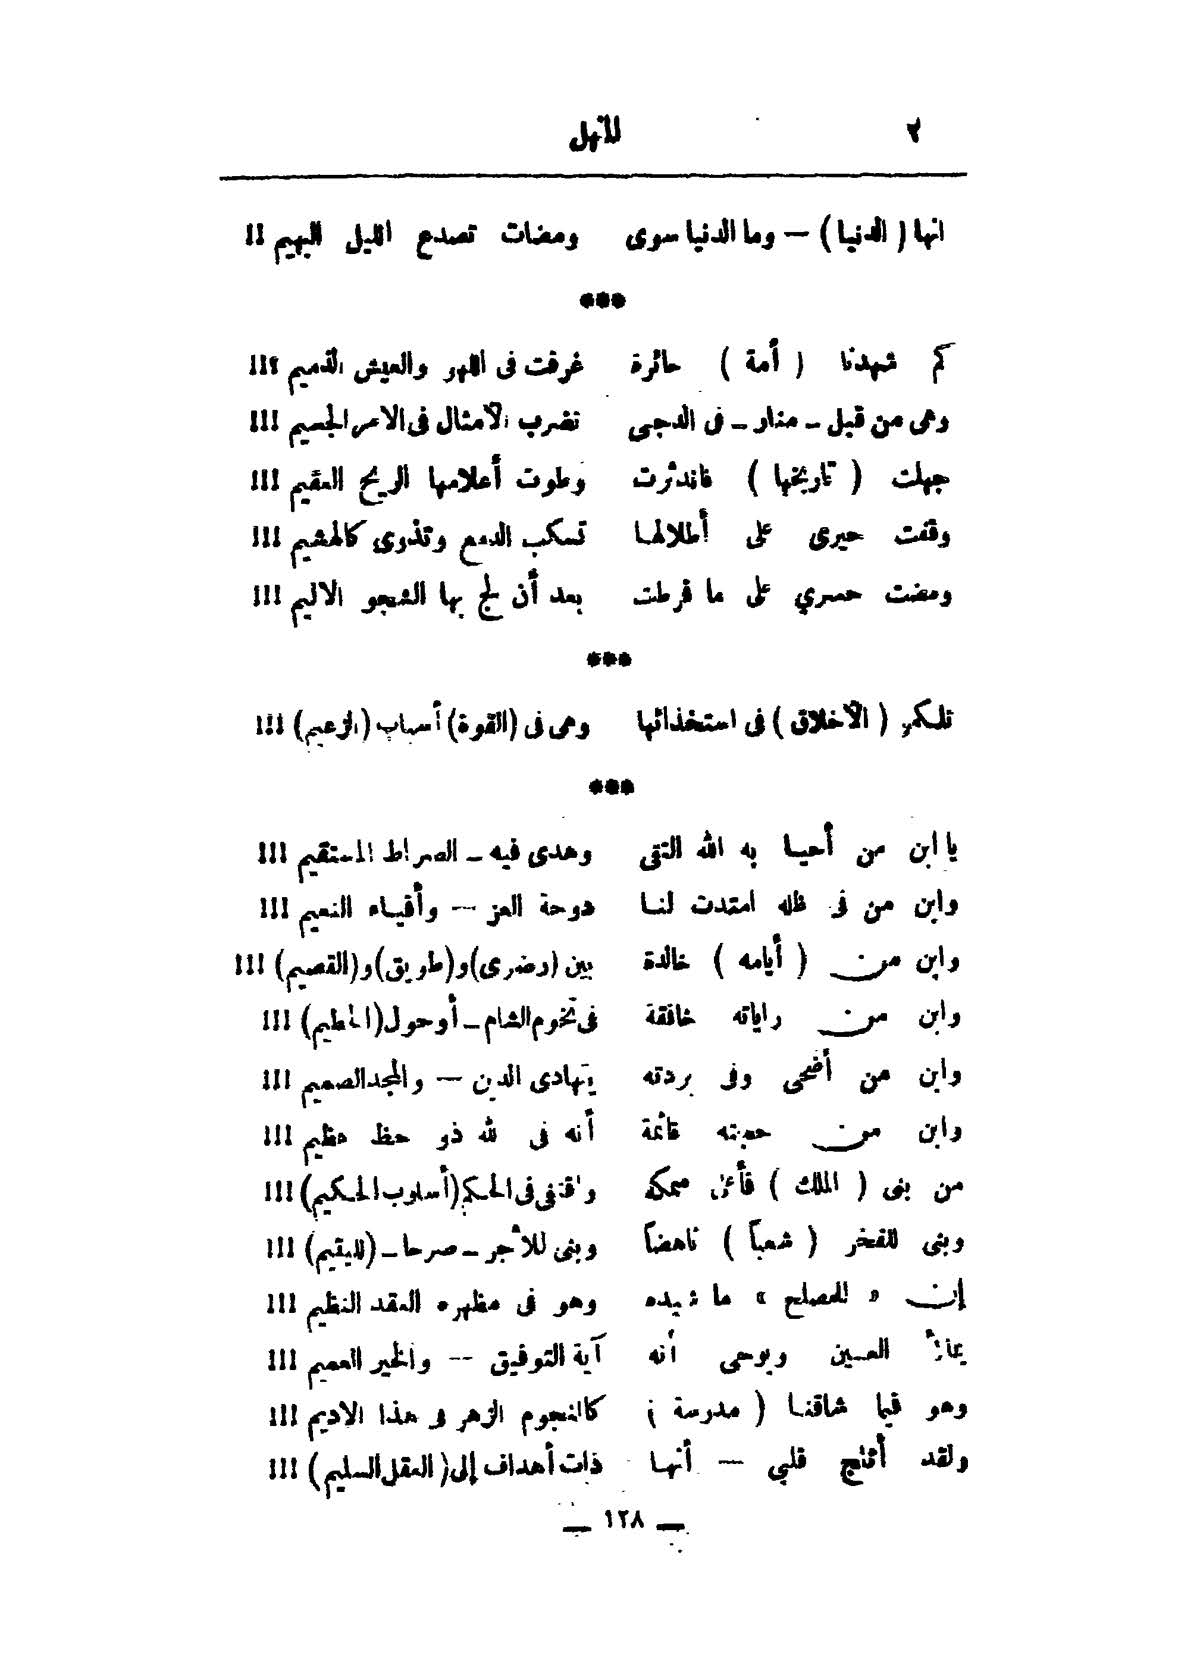 ٢ المنهل
انها ( الدنيا ) — وما الدنيا سوى ومضات تصدع الليل البهيم !!
***
كم شهدنا ( أمة ) حائرة غرقت فى اللهو والعيش الذميم ؟!!
وهى من قبل ــ منار ــ فى الدجى تضرب الأمثال فى الامر الجسيم !!!
جهلت ( تاريخها ) فاندثرت وطوت أعلامها الريح العقيم !!!
وقفت حيرى على أطلالها تسكب الدمع وتذوى كالهشيم !!!
ومضت حسرى على ما فرطت بعد أن لج بها الشجو الاليم !!!
***
تلكم ( الأخلاق ) فى استخذائها وهى فى (القوة) أسباب (الزعيم) !!!
***
يا ابن من أحيا به الله التقى وهدى فيه ــ الصراط المستقيم !!!
وابن من فى ظله امتدت لنا دوحة العز — وأفياء النعيم !!!
وابن من ( أيامه ) خالدة بين (رضوى) و(طويق) و(القصيم) !!!
وابن من راياته خافقة فى تخوم الشام ــ أو حول (الحطيم) !!!
وابن من أضحى وفى بردته يتهادى الدين — والمجد الصميم !!!
وابن من حجته قائمة أنه فى لله ذو حظ عظيم !!!
من بنى ( الملك ) فأعلى سمكه واقتفى فى الحكم (أسلوب الحكيم) !!!
وبنى للفخر ( شعباً ) ناهضاً وبنى للأجر ــ صرحا ــ (لليتيم) !!!
إن « للمصلح » ما شيده وهو فى مظهره العقد النظيم !!!
يملأ العين ويوحى أنه آية التوفيق — والخير العميم !!!
وهو فيما شاقنا ( مدرسة ) كالنجوم الزهر فى هذا الاديم !!!
ولقد أثلج قلبي — أنها ذات أهداف إلى ( العقل السليم ) !!!
— ١٢٨ —